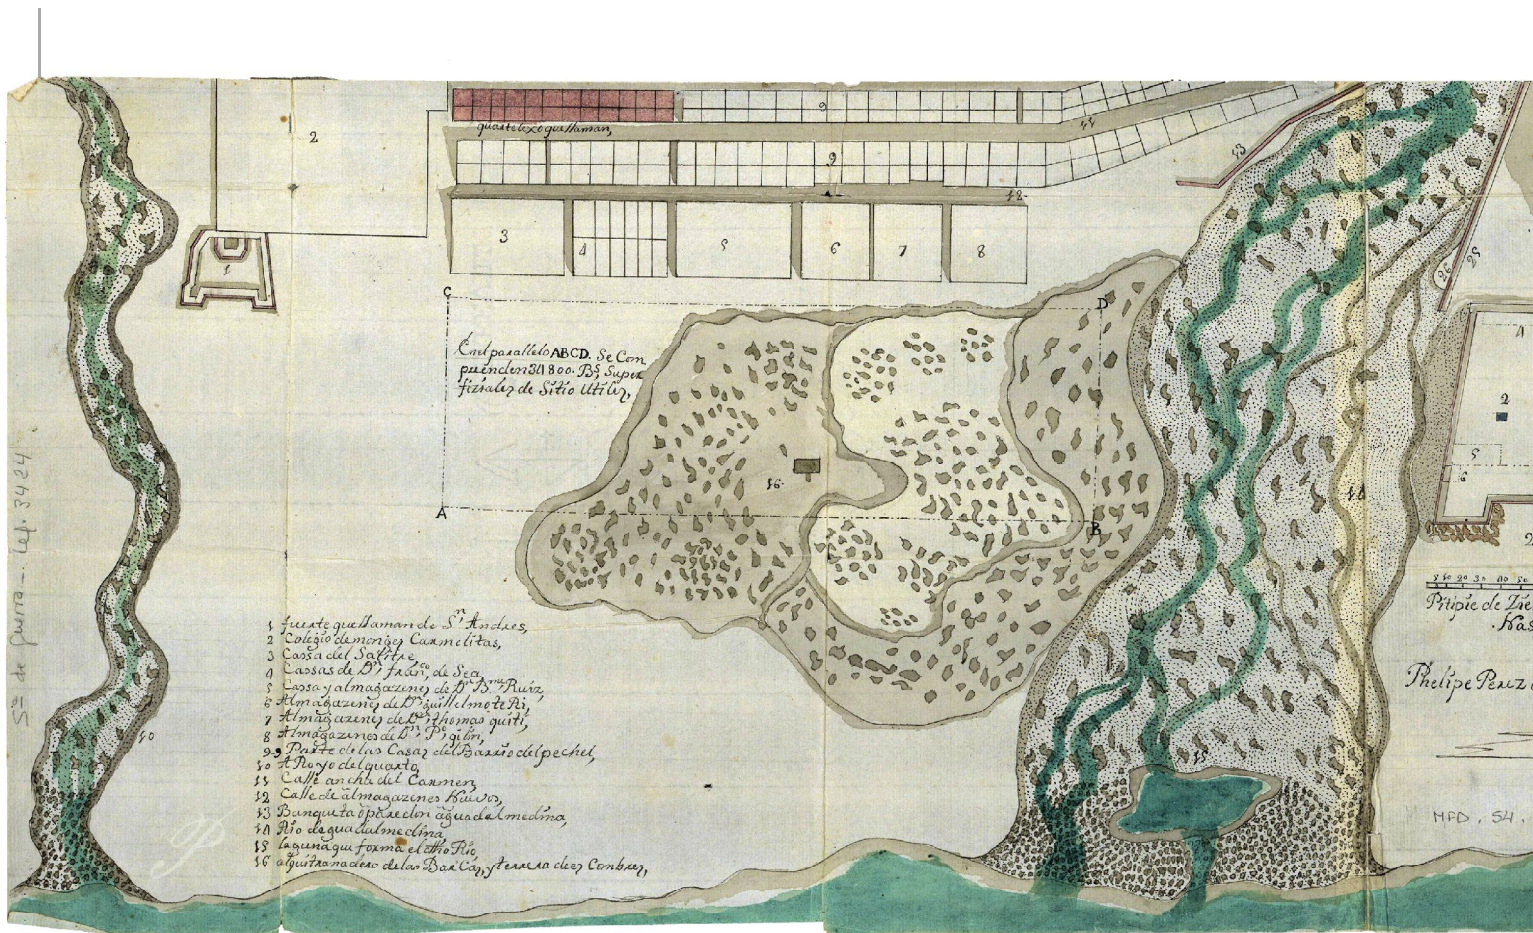 2
9
quartelexo que llaman,
11
9
12
13
3
4
5
6
7
8
1
C
D
26
25
En el parallelo ABCD. Se Com
prenden 31800. Bs. Super
fiziales de Sitio Utiles,
16.
A
B
14
4
2
5
6
2
5 10 20 30 40 50
Pitipie de
Phelipe Perez
15
10
1 fuerte que llaman de Sn Andres,
2 Colegio de monges Carmelitas,
3 Cassa del Salitre,
4 Cassas de Dn franco, de Sea
5 Cassa y almagazenes de Dn Bme Ruiz,
6 Almagazenes de Dn guillelmo te Ri,
7 Almagazenes de Dn thomas quiti,
8 Almagazenes de Dn Po gibn,
9 9 Parte de las Casas del Barrio del pechel,
10 ARoyo del quarto,
11 Calle ancha del Carmen,
12 Calle de almagazenes Nuevos,
13 Banqueta o paredon aguadalmedina,
14 Rio de guadalmedina
15 laguna que forma el dho Rio,
16 alquitranadero de las Barcas, y terrero de es Combres,
MPD. 54.
Sa de Guerra - Leg. 3424